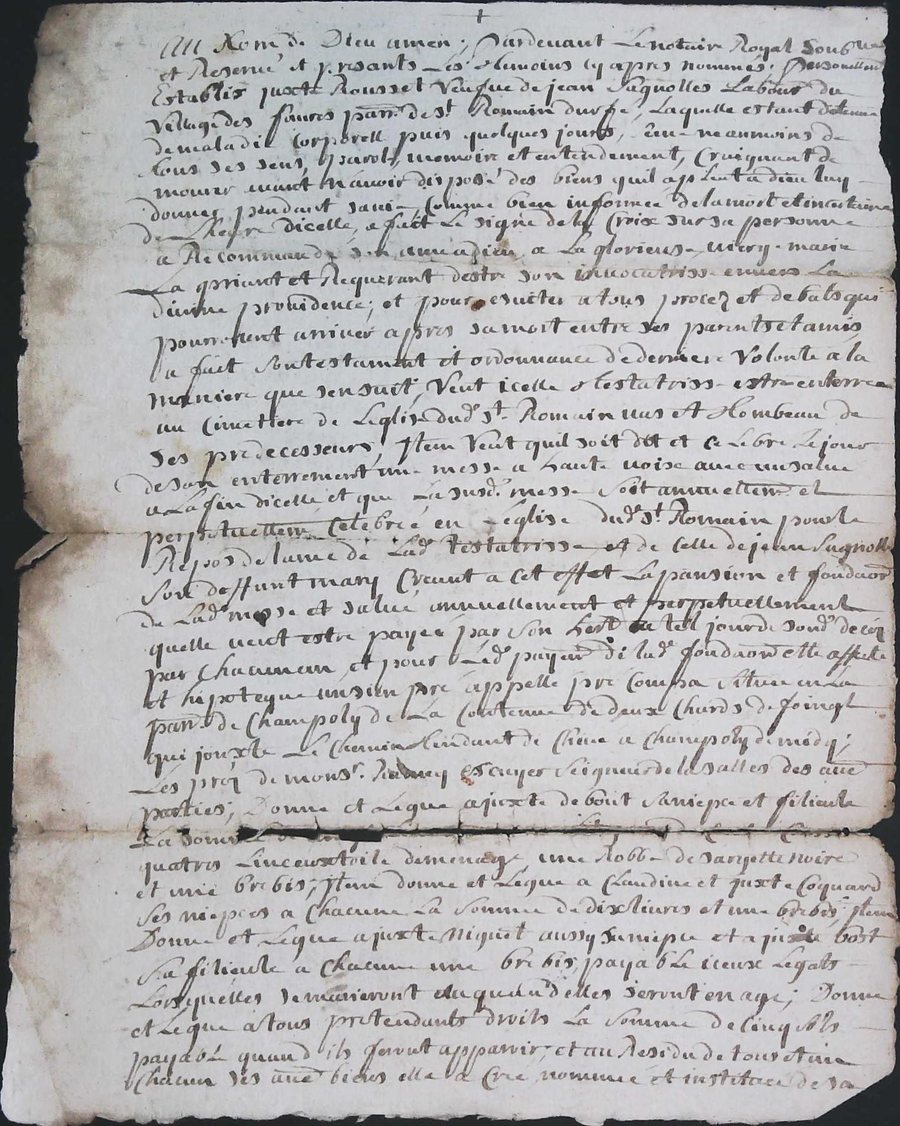 Au Nom de Dieu amen; Pardevant Le notaire Royal Soub
et Reservé et presants Les tSemoins Cy apres nommés; Personellemt
Establis juxte Rousset Veufue de jean Labour du
Village des parr. de St. Romain durfe, Laquelle estant detenue
de maladie Corporell puis quelques jours, neanmoins de
tous ses sens, parole, memoire et entendement, Craignant de
mourir avant navoir disposé des biens quil a pleut a dieu luy
donner pendant sa vie, Comme bien informée de la mort et incertaine
de Lheure dicelle, a fait Le signe de la Croix sur sa personne
a Recommandé son ame a Dieu, a La glorieuse vierge marie
La priant et Requerant destre son invocatrisse envers La
divine providence; et pour esuiter a tous procez et debats qui
pourroient arriver apres sa mort entre ses parents et amis
a fait son testament et ordonnance de derniere Volonte a la
maniere que sensuit, Veut icelle testatrisse estre enterrée
au Cimetiere de Leglise dud. St. Romain vas et tombeau de
ses predecesseurs, Item Veut quil soit dit et Celebré Le jour
de son enterrement une messe a haute voise avec un salue
a La fin dicelle, et que La susd. messe soit annuellemt et
perpetuellemt Celebrée en Leglise dud. St. Romain pour le
Repos de lame de Lad. testatrisse et de celle de jean
son deffunt mary Creant a cet effet La pansion et fondaon
de Lad. messe et salue annuellement et perpetuellement
quelle veut estre payée par son hert. a tel jour de sond. deces
par Chacun an, et pour Led. payemt. di lad. fondaon elle affecte
et hipoteque un sien pré appellé pré Comba situee en La
parr. de Champoly de La Contenue de deux Chards de foingt
qui jouxte Le Chemin tendant de a Champoly de midy;
Les prez de monsr. Ramey escuyer Seigneur de la salles des autres
parties; Donne et Legue a juxte de bout sa niepce et filieule
La somme
quatres Linceux toile de menage une Robbe de sargette noire
et une brebis; Item donne et Legue a Claudine et juxte Coquard
ses niepces a Chacune La somme de dix livres et une brebis; Item
Donne et Legue a juxte niguet aussy sa niepce et a juxte bost
sa filieule a Chacune une brebis, payable iceux Legats
Lorsquelles se marieront ou quand elles seront en age; Donne
et Legue a tous pretendants droits La somme de Cinq sols
payable quand ils feront apparoir; et au Residu de tous et un
Chacun ses autres biens elle a Creé, nommee et instituee de sa